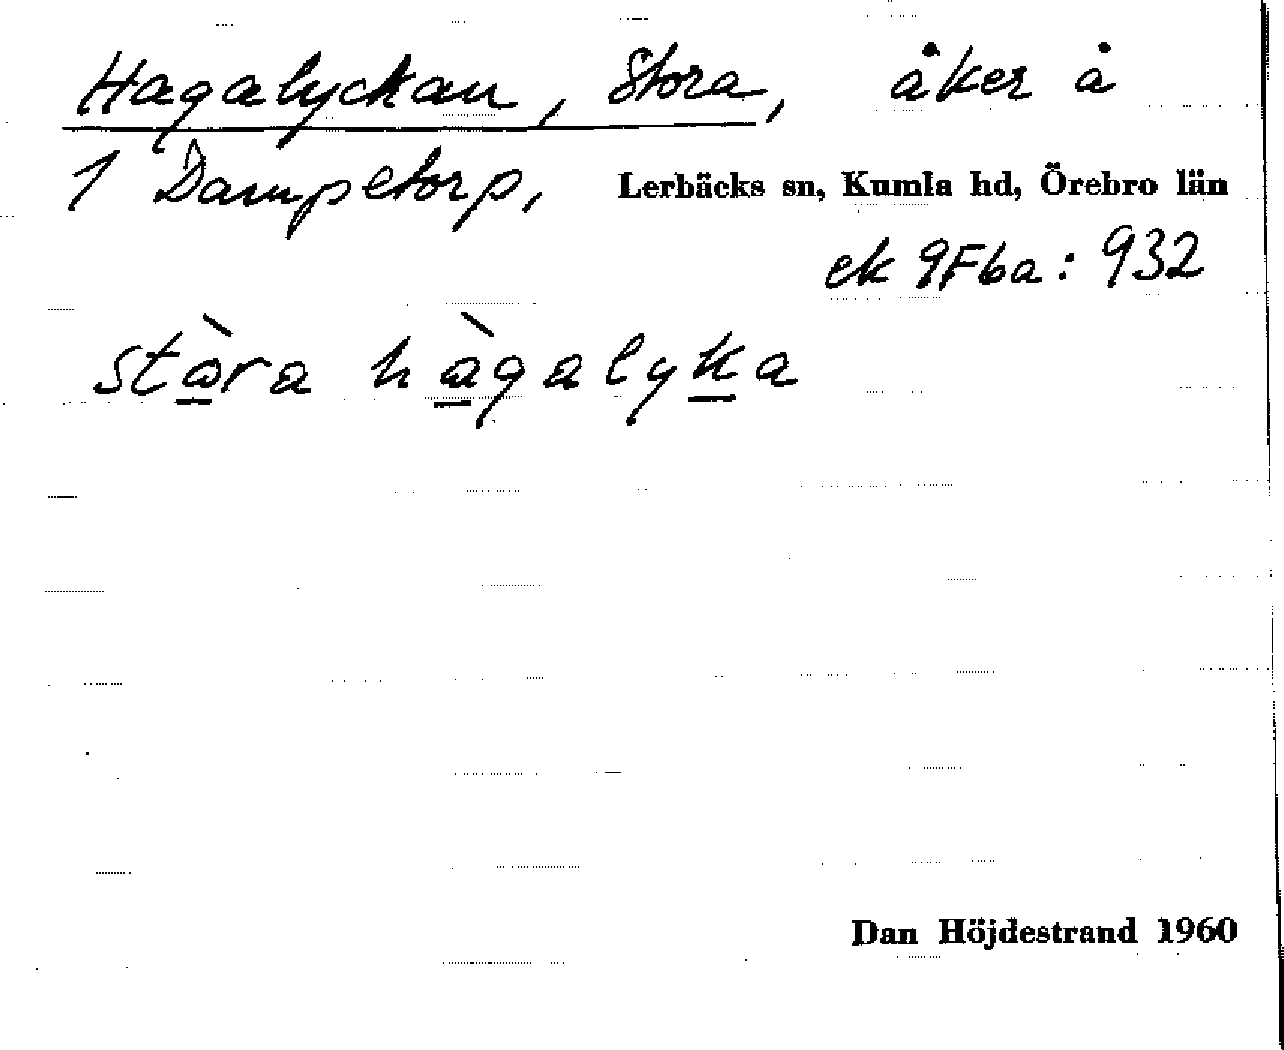 Hagalyckan, Stora, åker å
1 Dampetorp, Lerbäcks sn, Kumla hd, Örebro län
ek 9F6a: 932
stàra hàgalyka
Dan Höjdestrand 1960